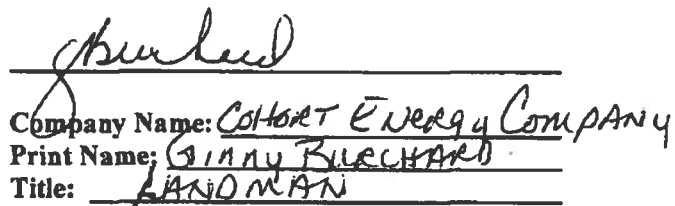 GBurchard
Company Name: Cohort Energy Company
Print Name: Ginny Burchard
Title: LANDMAN